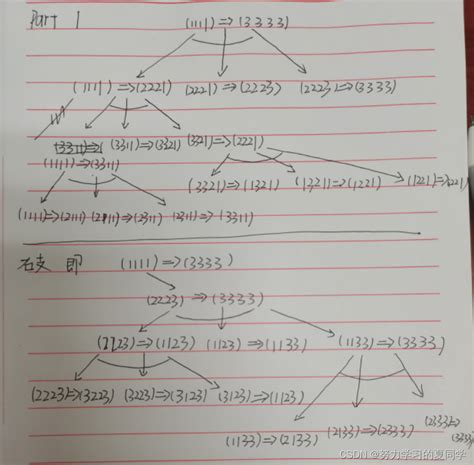 Part 1
(1111)⇒(3333)
(1111)⇒(2221) (2221)⇒(2223) (2223)⇒(3333)
(3311)⇒(3321) (3321)⇒(2221)
(1111)⇒(3311)
(3321)⇒(1321) (1321)⇒(1221) (1221)⇒(2221)
(1111)⇒(2111) (2111)⇒(2311) (2311)⇒(3311)
右支 即 (1111)⇒(3333)
(2223)⇒(3333)
(2223)⇒(1123) (1123)⇒(1133) (1133)⇒(3333)
(2223)⇒(3223) (3223)⇒(3123) (3123)⇒(1123)
(1133)⇒(2133) (2133)⇒(2333) (2333)⇒(3333)
CSDN @努力学习的夏同学